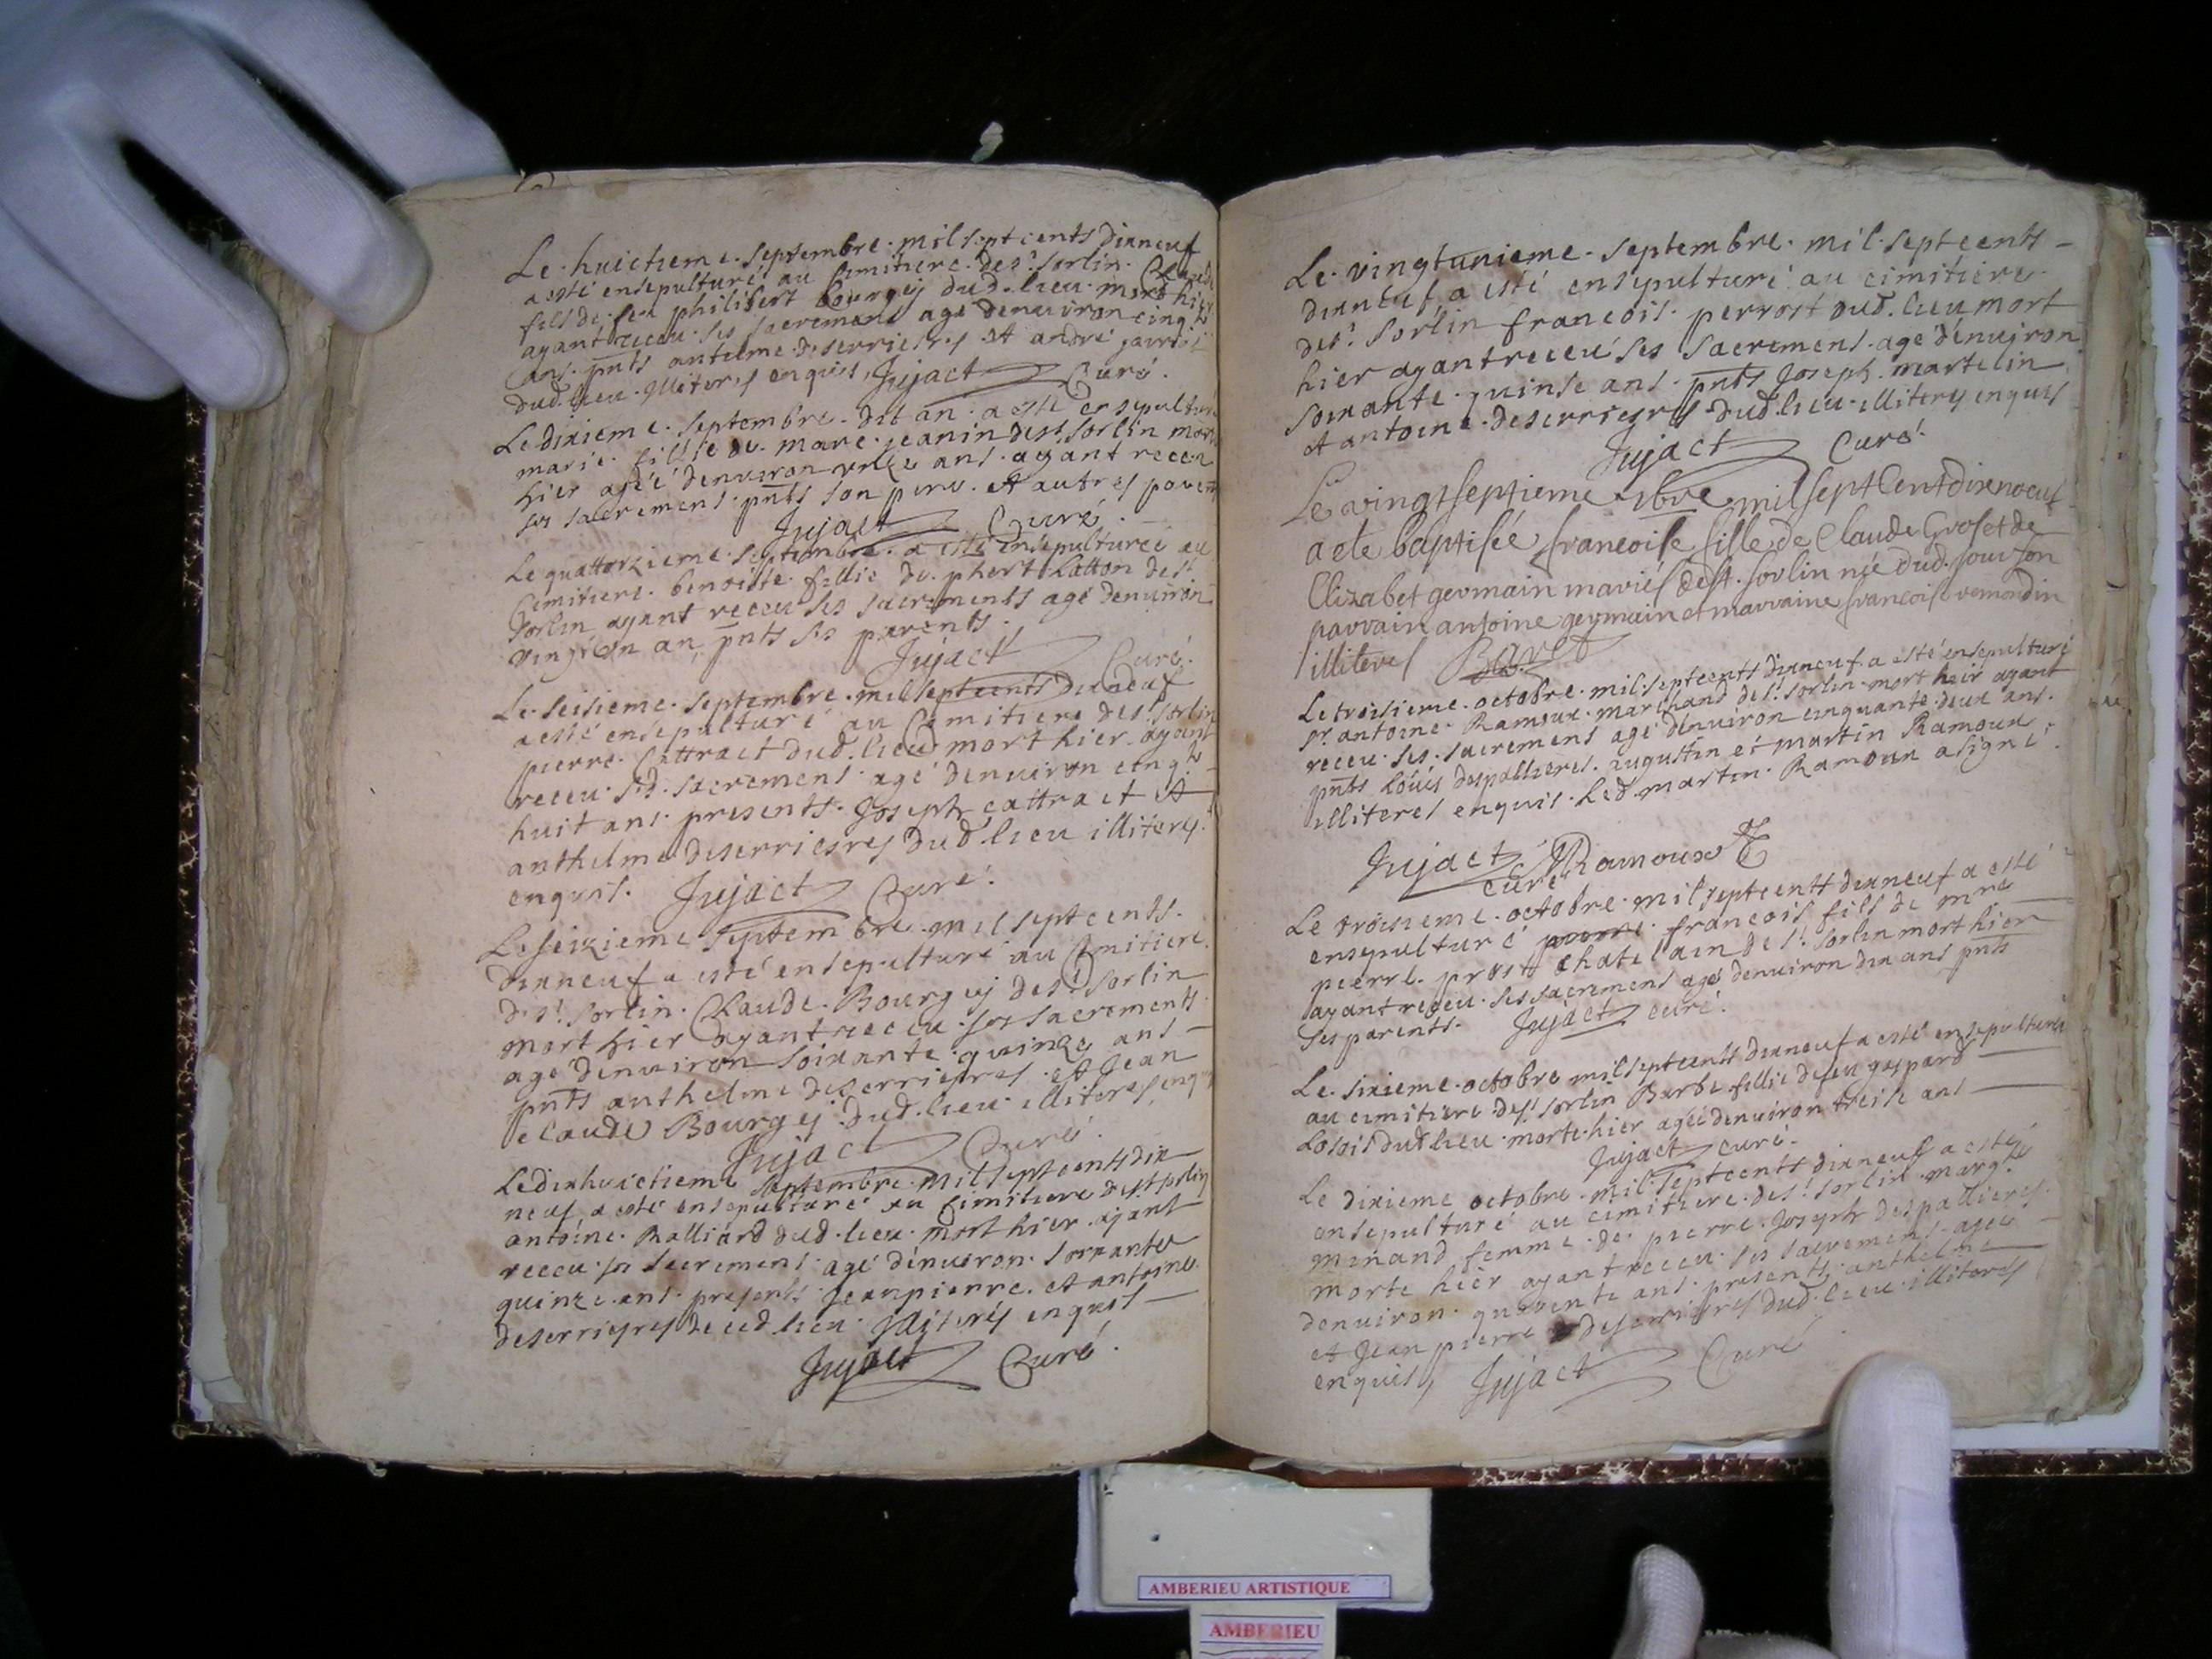 Le huictieme septembre mil sept cents dixneuf
a esté ensepulturé au Cimitiere de st sorlin Claude
fils de feu philibert bourgey dud. lieu mort hier
ayant receu ses sacremens agé denuiron cinq
ans pnts antelme deserrieres et andré
dud. lieu illiterés enquis, Jujact Curé.
Le dixieme septembre dit an a esté ensepulturé
marie fillie de marc jeanin de st sorlin morte
hier agéé denuiron onze ans ayant receu
ses sacremens pnts son pere et autres parents
Jujact Curé.
Le quattorzieme septembre a esté ensepulturéé au
Cimitiere benoiste fillie de phert Latton de st
sorlin ayant receu ses sacrements agé denuiron
vingt un an pnts ses parents.
Jujact Curé.
Le seisieme septembre mil sept cents dixneuf
a esté ensepulturé au Cimitiere de st sorlin
pierre Cattract dud. lieu mort hier ayant
receu sed. sacremens agé denuiron cinqte
huit ans presents Joseph Cattract et
anthelme deserrieres dud lieu illiterés
enquis. Jujact Curé.
Le seizieme septembre mil sept cents
dixneuf a esté ensepulturé au Cimitiere
de st sorlin Claude Bourgey de st sorlin
mort hier ayant receu ses sacrements
age denuiron soixante quinze ans
pnts anthelme deserrieres et Jean
claude Bourgey dud. lieu illiteres, enquis
Jujact Curé.
Le dixhuictieme septembre mil sept cents dix
neuf a esté ensepulturé au Cimitiere de st sorlin
antoine Ralliard dud. lieu mort hier ayant
receu ses sacremens agé dénuiron soixante
quinze ans presents Jean pierre et antoine
deserrieres de ced lieu illiterés enquis
Jujact Curé.
Le vingtunieme septembre mil sept cents
dixneuf a esté ensepulturé au cimitiere
de st sorlin francois perrost dud. lieu mort
hier ayant receu ses sacremens age dénuiron
soixante quinse ans pnts Joseph martelin
et antoine deserrieres dud. lieu illiteres enquis
Jujact Curé.
Le vingtseptieme 7bre mil sept Cent dixnoeuf
a ete baptisée francoise fille de Claude Groset de
Elizabet germain mariés de st. sorlin née dud. jour son
parrain antoine germain et marraine francoise remondin
illiteres Bavet
Le troisieme octobre mil septcents dixneuf a esté ensepulturé
sr. antoine Ramoux marchand de st sorlin mort heir ayant
receu ses sacremens agé dénuiron cinquante deux ans.
pnts Loüis despallieres augustin et martin Ramoux
illiteres enquis led martin Ramoux a signé.
Jujact curé Ramoux
Le troisieme octobre mil septcents dixneuf a esté
ensepulturé pierre francois fils de mre
pierre prost chatelain de st. sorlin mort hier
ayant receu ses sacremens agé denuiron dix ans pnts
ses parents. Jujact curé.
Le sixieme octobre mil septcents dixneuf a esté ensepulturé
au cimitiere de st sorlin Barbe fillie de feu gaspard
Losois dud lieu morte hier agéé denuiron treise ans
Jujact curé.
Le dixieme octobre mil septcents dixneuf a esté
ensepulturé au cimitiere de st. sorlin margte
minand femme de pierre Joseph despallieres
morte hier ayant receu ses sacremens agéé
denuiron quarente ans presents anthelme
et Jean pierre deserrieres dud. lieu illiteres
enquis, Jujact Curé
AMBERIEU ARTISTIQUE
AMBERIEU